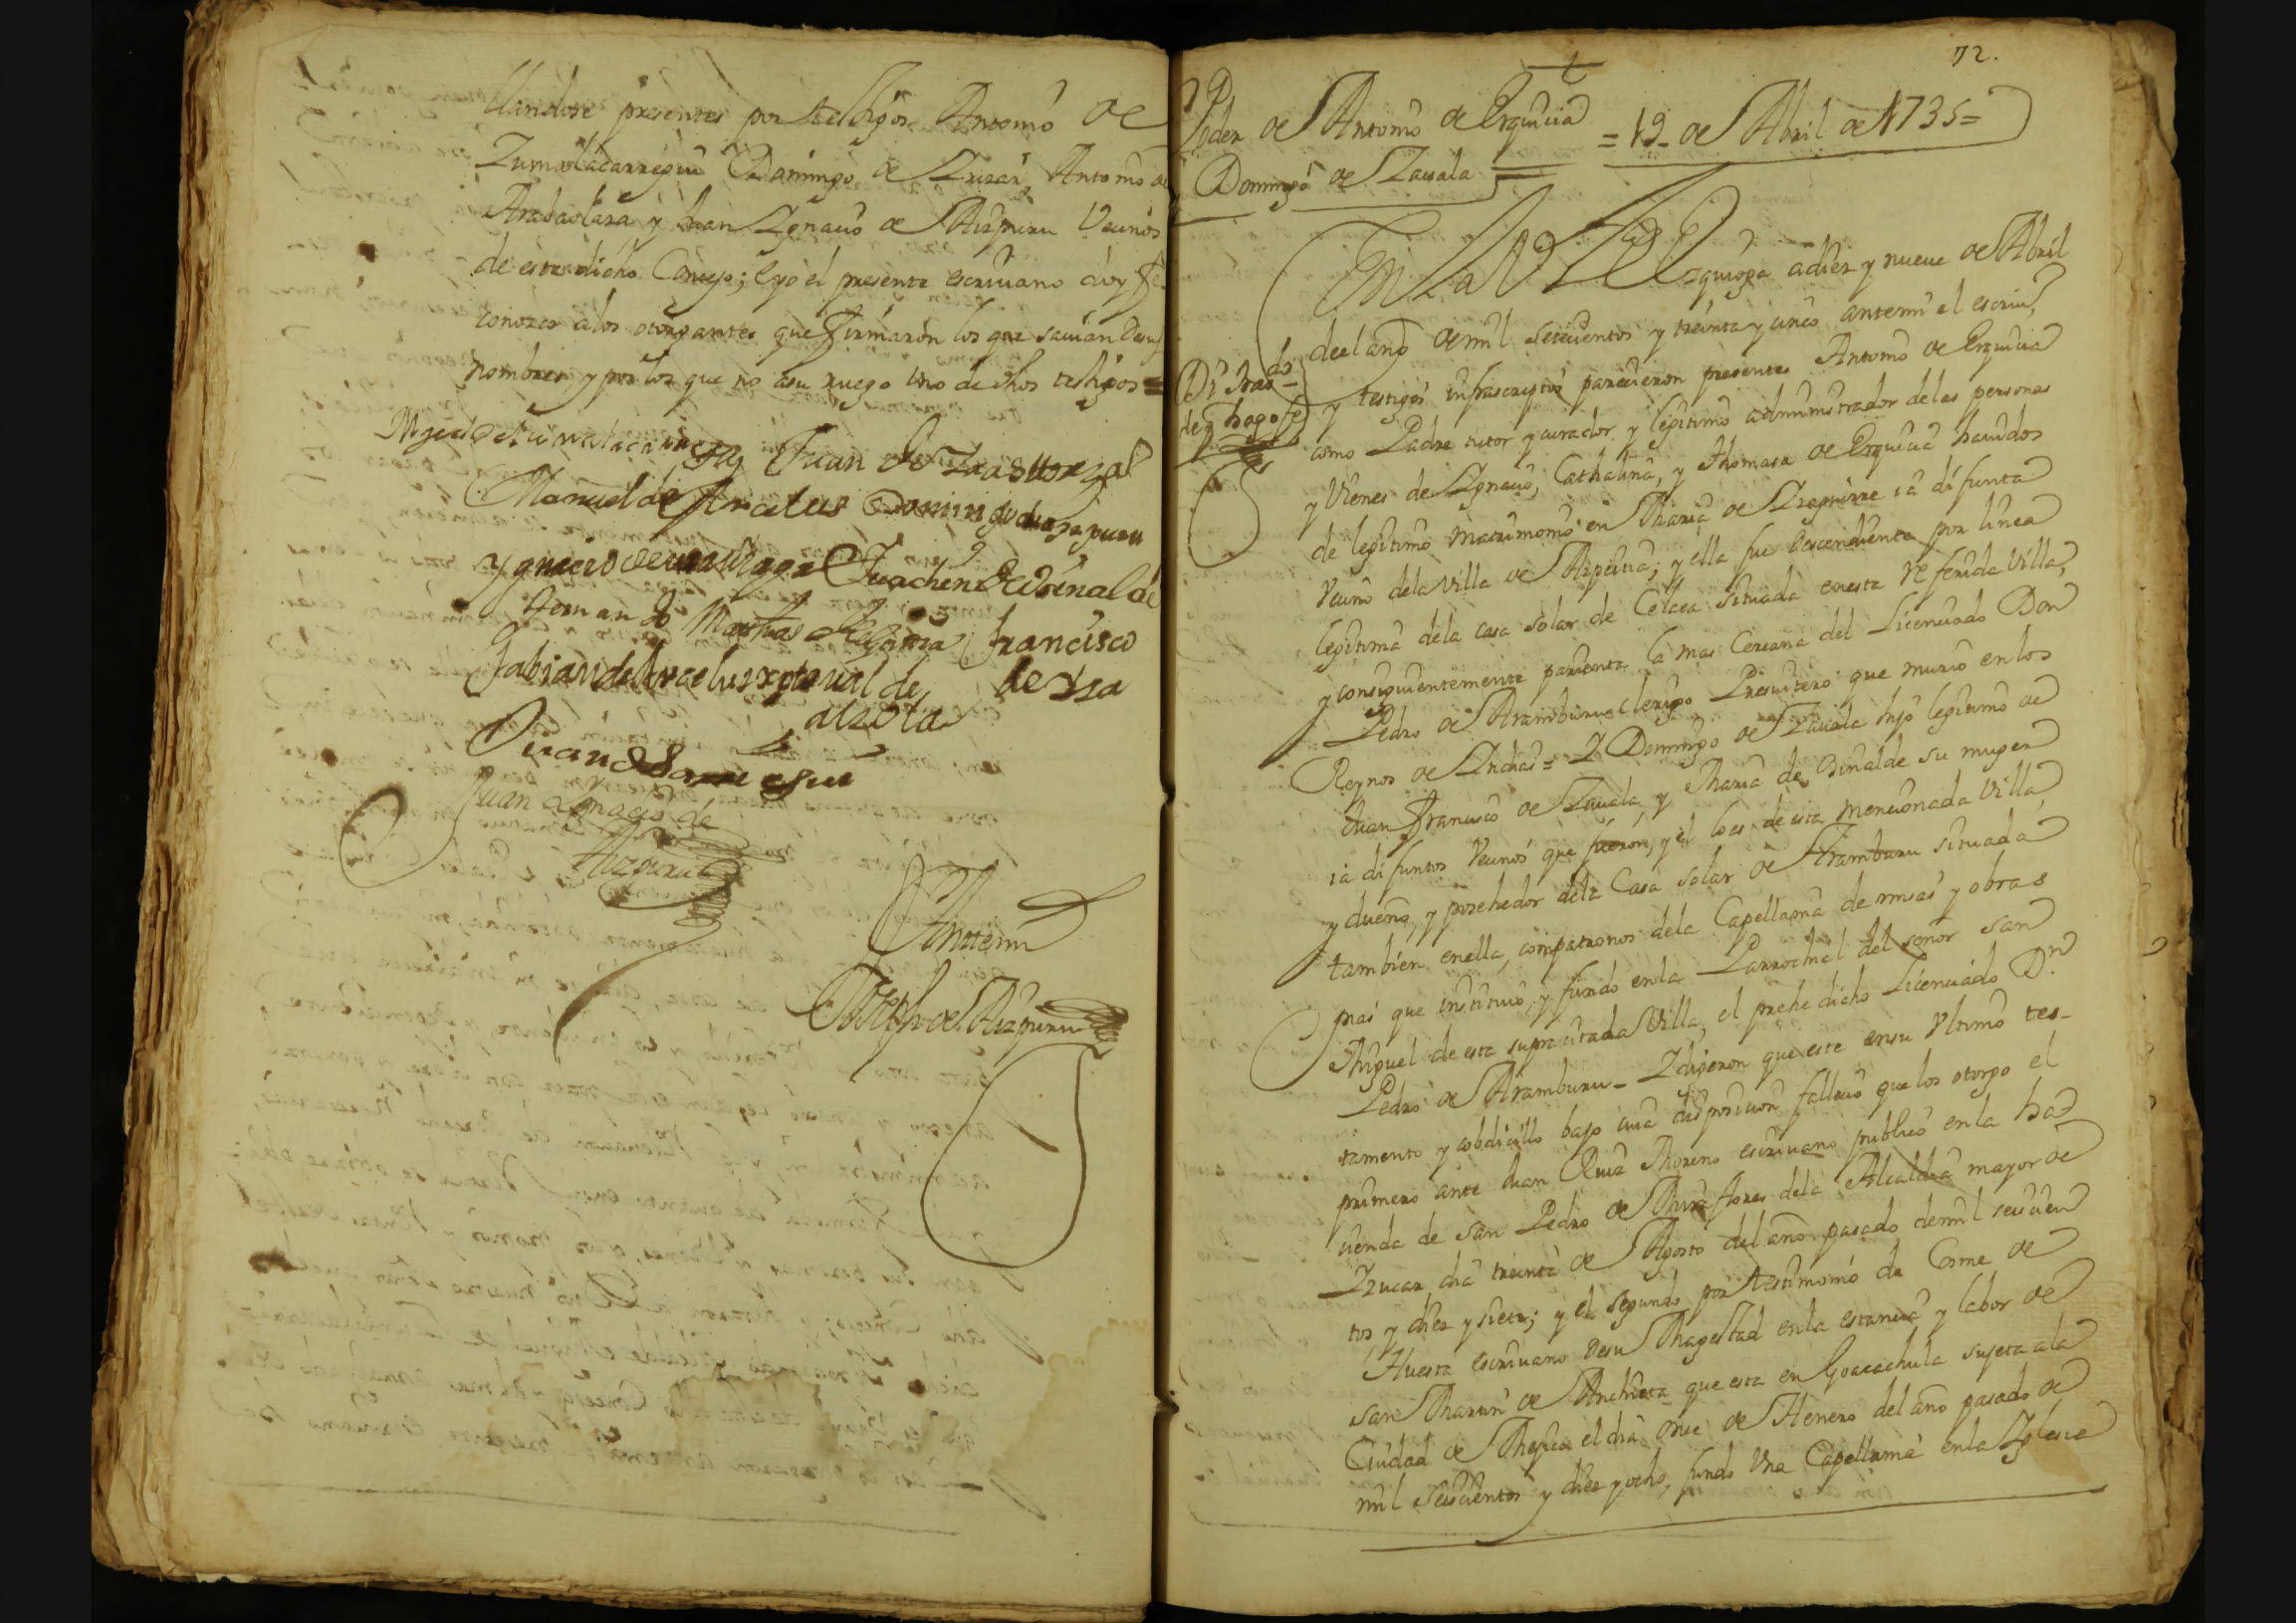 llandose presentes por testigos Antonio de
Zumalacarregui Domingo de Yrizar, Antonio de
Arabaolaza y Juan Ygnacio de Aizpuru Vecinos
de este dicho Concejo; e yo el presente escrivano doy fe
conozco a los otorgantes que firmaron los que savian de sus
nombres y por los que no a su ruego Uno de dhos testigos =
Miguel de Zumalacarregui Juan de
Manuel de Arcelus Domingo de Aizpuru
Ygnacio de Juachin de Osinalde
Hernando Mathias de francisco
Fabian de Arcelus xptoval de de Ysa
alzola
Juan de
Juan Ygnacio de
Aizpuru
Antemi
Joseph de Aizpuru
72.
Poder de Antonio de Ezquicia = 19 de Abril de 1735 =
Domingo de Zavala
En La Villa de Ezquioga a diez y nueve de Abril
de el año de mil setecientos y treinta y cinco antemi el escrivº
y testigos infrascriptos parecieron presentes Antonio de Ezquicia
como Padre tutor y curador y legitimo administrador de las personas
y Vienes de Ygnacio, Cathalina, y Thomasa de Ezquicia havidos
de legitimo matrimonio en Maria de Yzaguirre ia difunta
Vecino de la Villa de Azpeitia; y ella fue Descendiente por linea
legitima de la casa solar de Celaea situada en esta referida Villa,
y consiguientemente parienta la mas Cercana del Licenciado Don
Pedro de Aramburu clerigo Presvitero que murio en los
Reynos de Yndias = Y Domingo de Zavala hijo legitimo de
Juan Francisco de Zavala, y Maria de Osinalde su muger
ia difuntos Vecinos que fueron, y el lo es de esta mencionada Villa,
y dueño, y posehedor de la Casa solar de Aramburu situada
tambien en ella, compatronos de la Capellania de misas y obras
pias que instituio, y fundo en la Parrochial del señor San
Miguel de esta supracitada Villa, el prehedicho Licenciado Dn
Pedro de Aramburu = Y dijeron que este en su Ultimo tes-
tamento y cobdicillo bajo cuia disposicion fallecio que los otorgo el
primero ante Juan Moreno escrivano publico en la ha-
cienda de San Pedro de Miraflores de la Alcaldia mayor de
Yzucar dia treinta de Agosto del año pasado de mil seiscien
tos y diez y siete; y el segundo por testimonio de Cosme de
Huesta escrivano de su Magestad en la estancia y labor de
San Martin de Anchieta que esta en Goacachula sujeta a la
Ciudad de el dia once de Henero del año pasado de
mil seiscientos y diez y ocho, fundo Una Capellania en la Yglesia